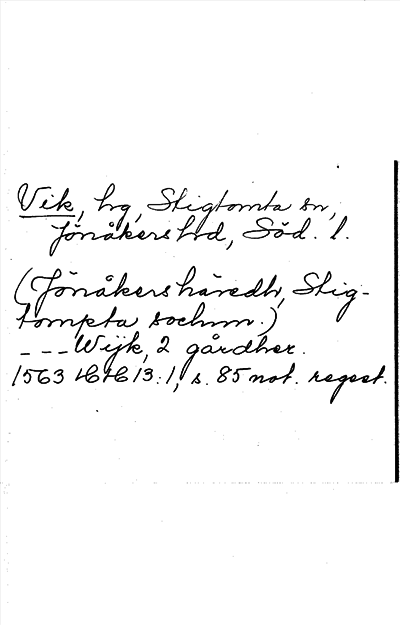 Vik, hg, Stigtomta sn,
Jönåkers hd, Söd. l.
(Jönåkers häredh, Stig-
tompta sochnn.)
- - - Wijk, 2 gårdher.
1563 HH 13:1, s. 85 not. regest.